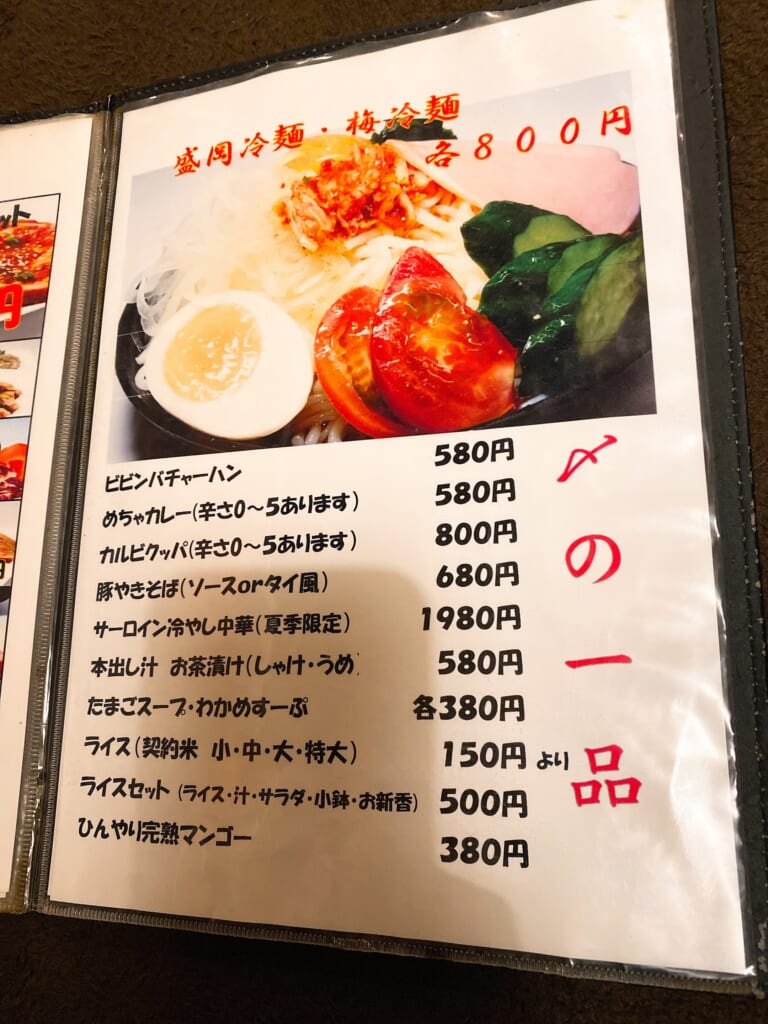 ット
円
盛岡冷麺・梅冷麺
各800円
ビビンバチャーハン 580円
めちゃカレー(辛さ0～5あります) 580円
カルビクッパ(辛さ0～5あります) 800円
豚やきそば(ソースorタイ風) 680円
サーロイン冷やし中華(夏季限定) 1980円
本出し汁 お茶漬け(しゃけ・うめ) 580円
たまごスープ・わかめすーぷ 各380円
ライス(契約米 小・中・大・特大) 150円 より
ライスセット (ライス・汁・サラダ・小鉢・お新香) 500円
ひんやり完熟マンゴー 380円
〆の一品